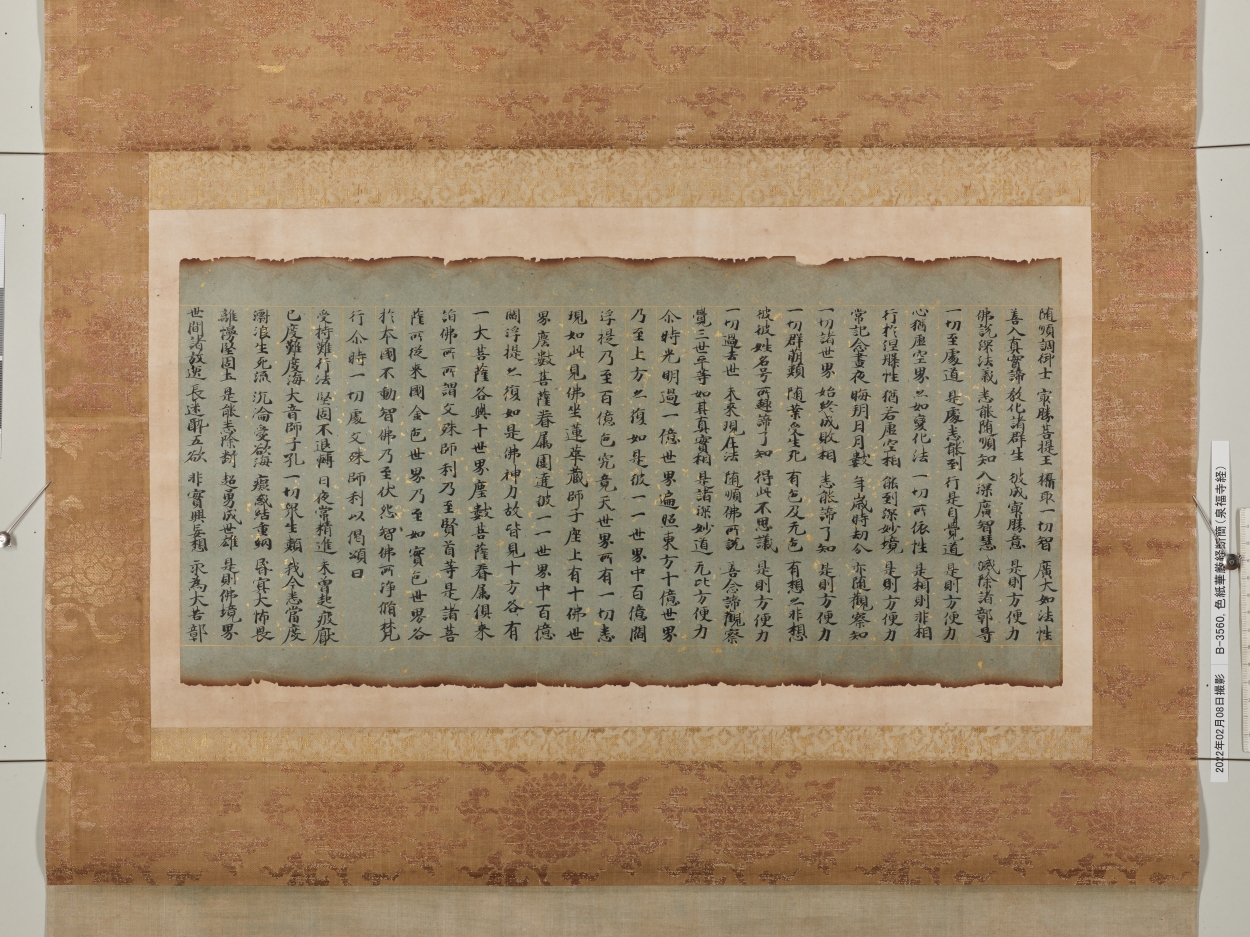 随順調御士 㝡勝菩提王 攝取一切智 廣大如法性
善入真實諦 教化諸群生 彼成㝡勝意 是則方便力
佛說深法義 悉能随順知 入深廣智慧 滅除諸鄣㝵
一切至處道 是處悉能到 行是自覺道 是則方便力
心猶虚空界 亦如變化法 一切所依性 是相則非相
行於涅槃性 猶若虚空相 能到深妙境 是則方便力
常記念晝夜 晦明日月數 年歲時劫分 亦随觀察知
一切諸世界 始終成敗相 悉能諦了知 是則方便力
一切群萌類 随業受生死 有色及无色 有想亦非想
彼彼姓名号 所趣諦了知 得此不思議 是則方便力
一切過去世 未来現在法 随順佛所說 善念諦觀察
覺三世平等 如其真實相 是諸深妙道 无比方便力
尒時光明過一億世界遍照東方十億世界
乃至上方亦復如是彼一一世界中百億閻
浮提乃至百億色究竟天世界所有一切悉
現如此見佛坐蓮華藏師子座上有十佛世
界塵數菩薩眷属圍遶彼一一世界中百億
閻浮提亦復如是佛神力故皆見十方各有
一大菩薩各與十世界塵數菩薩眷属俱来
詣佛所所謂文殊師利乃至賢首等是諸菩
薩所従来國金色世界乃至如實色世界各
於本國不動智佛乃至伏怨智佛所淨脩梵
行尒時一切處文殊師利以偈頌曰
受持難行法 堅固不退轉 日夜常精進 未曽起疲猒
已度難度海 大音師子吼 一切衆生類 我今悉當度
漂浪生死流 沉淪愛欲海 癡惑結重網 昏冥大怖畏
離慢堅固士 是能悉除斷 超勇成世雄 是則佛境界
世間諸放逸 長迷酔五欲 非實興妄想 永為大苦鄣
2022年02月08日撮影 B-3560, 色紙華厳経断簡（泉福寺経）